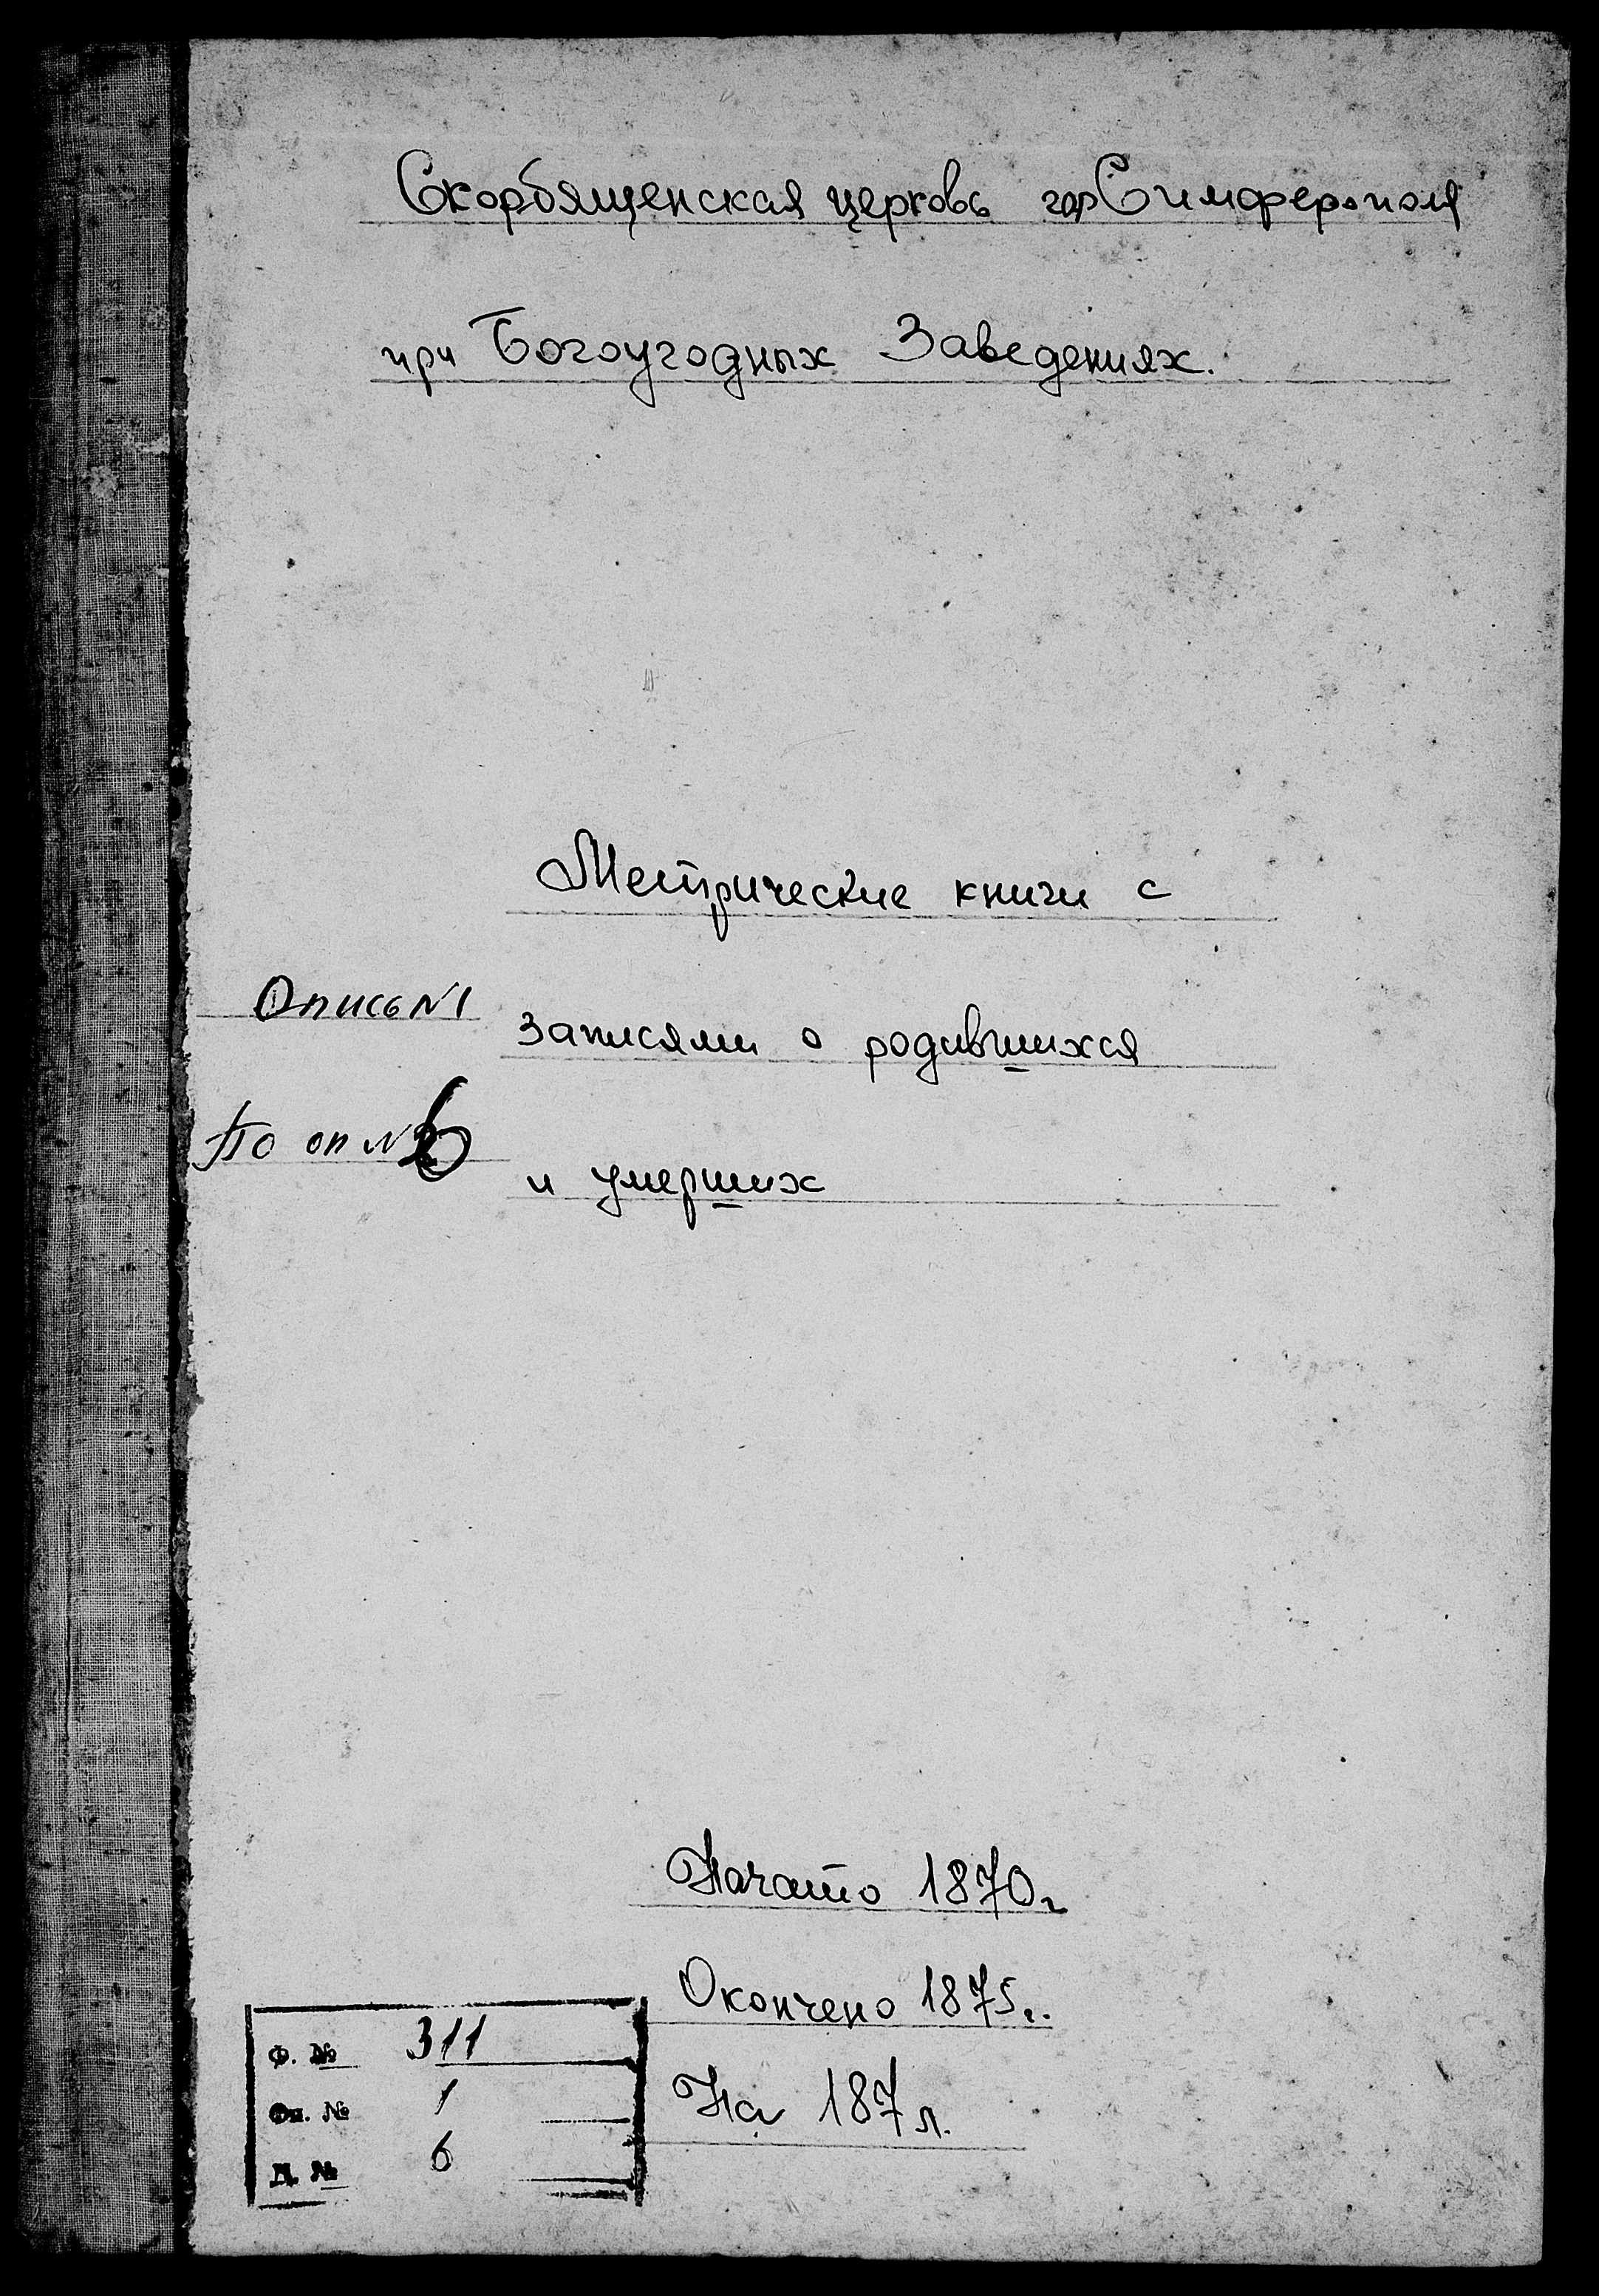 Скорбященская церковь гор Симферополя
при Богоугодных Заведениях.
Метрические книги с
Опись N1
записями о родившихся
По оп N 6
и умерших
Начато 1870г
Окончено 1875г.
На 187 л.
Ф. № 311
Оп. № 1
Д. № 6